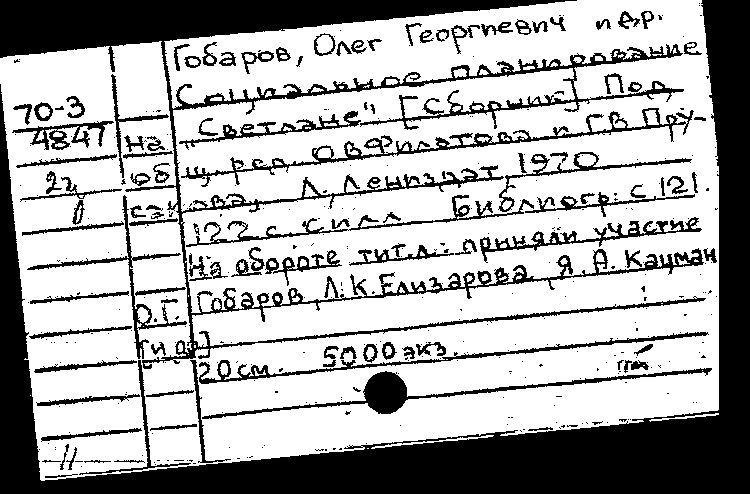 Гобаров, Олег Георгиевич и др.
Социальное планирование
70-3
4847
на „Светлане". [Сборник]. Под
2ц
об щ. ред. О.В. Филатова и Г.В. Пру-
сан ова. Л., Лениздат, 1970
122 с. с илл. Библиогр: с. 121.
На обороте тит. л.: приняли участие
О.Г. Гобаров, Л.К. Елизарова, Я.А. Кацман
[и др]
20 см. 5000 экз.
11